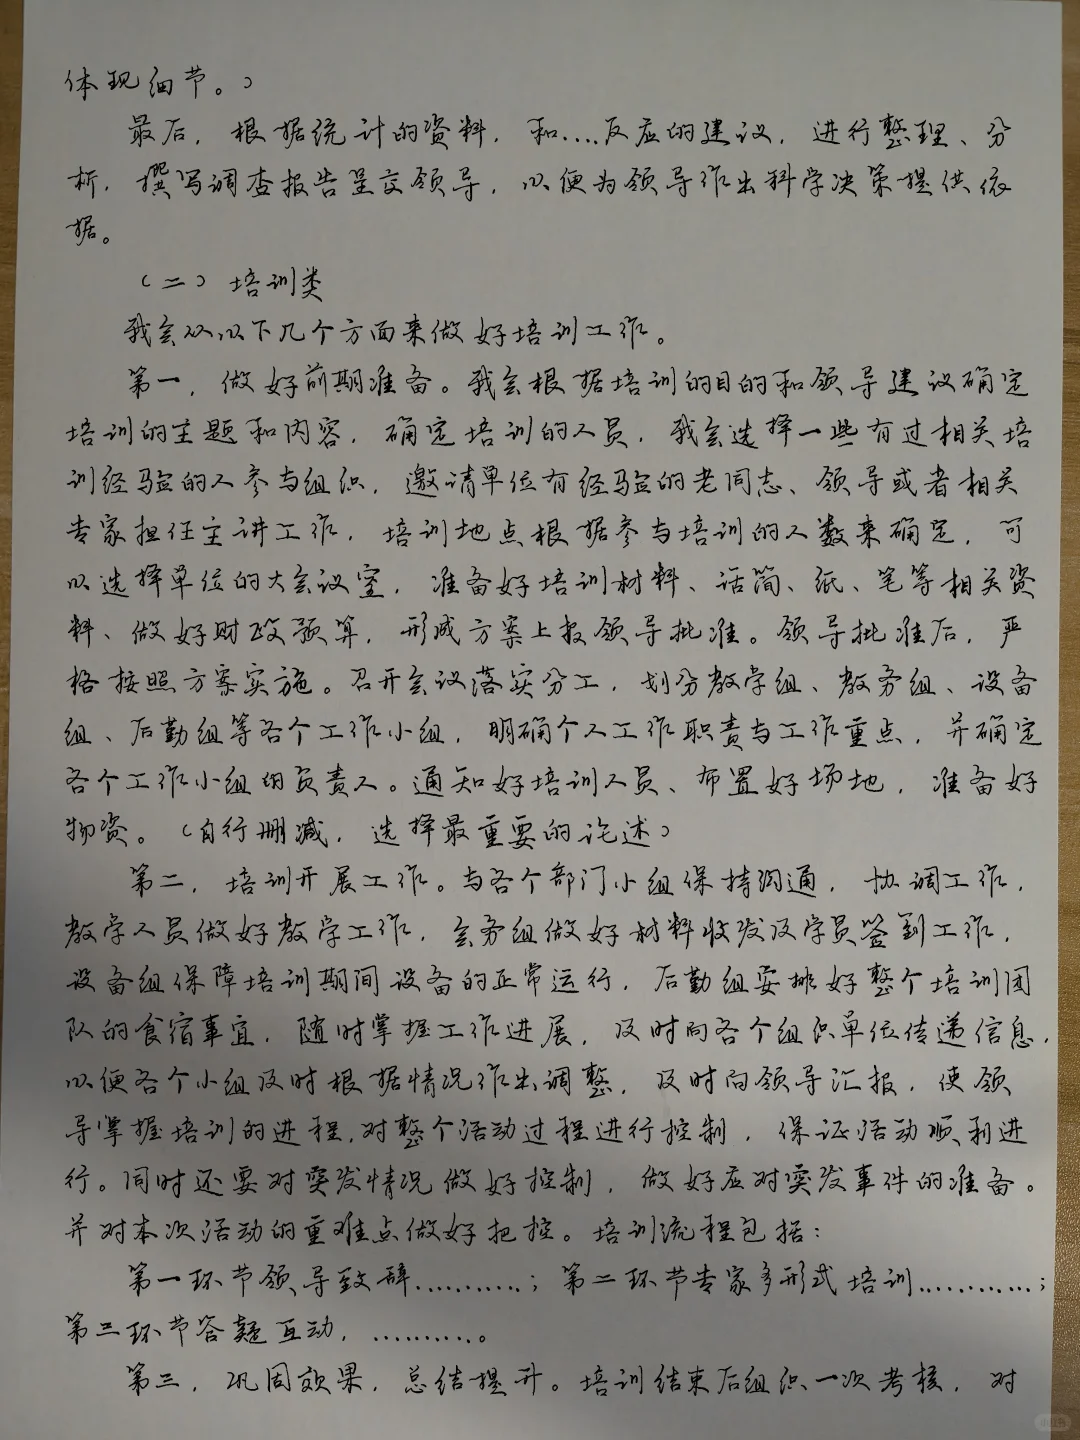 体现细节。）
最后，根据统计的资料，和....反应的建议，进行整理、分
析，撰写调查报告呈交领导，以便为领导作出科学决策提供依
据。
（二）培训类
我会从以下几个方面来做好培训工作。
第一，做好前期准备。我会根据培训的目的和领导建议确定
培训的主题和内容，确定培训的人员，我会选择一些有过相关培
训经验的人参与组织，邀请单位有经验的老同志、领导或者相关
专家担任主讲工作，培训地点根据参与培训的人数来确定，可
以选择单位的大会议室，准备好培训材料、话筒、纸、笔等相关资
料、做好财政预算，形成方案上报领导批准。领导批准后，严
格按照方案实施。召开会议落实分工，划分教学组、教务组、设备
组、后勤组等各个工作小组，明确个人工作职责与工作重点，并确定
各个工作小组的负责人。通知好培训人员、布置好场地，准备好
物资。（自行删减，选择最重要的论述）
第二，培训开展工作。与各个部门小组保持沟通，协调工作，
教学人员做好教学工作，会务组做好材料收发及学员签到工作，
设备组保障培训期间设备的正常运行，后勤组安排好整个培训团
队的食宿事宜，随时掌握工作进展，及时向各个组织单位传递信息，
以便各个小组及时根据情况作出调整，及时向领导汇报，使领
导掌握培训的进程，对整个活动过程进行控制，保证活动顺利进
行。同时还要对突发情况做好控制，做好应对突发事件的准备。
并对本次活动的重难点做好把控。培训流程包括：
第一环节领导致辞...........；第二环节专家多形式培训............；
第三环节答疑互动，...........。
第三，巩固效果，总结提升。培训结束后组织一次考核，对
小红书